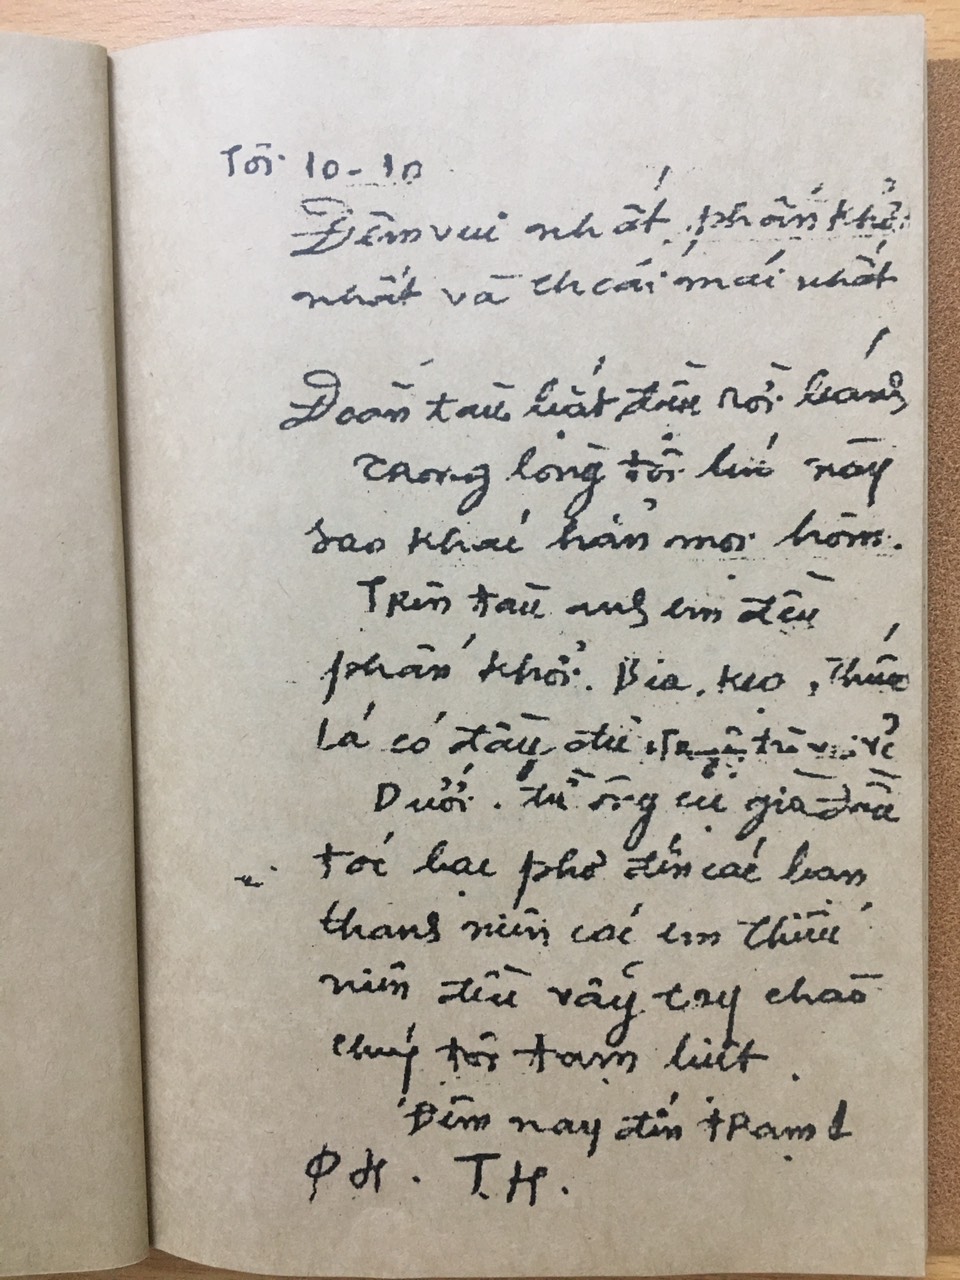 Tối 10-10
Đêm vui nhất, phấn khởi
nhất và thoải mái nhất
Đoàn tàu bắt đầu rời bánh
trong lòng tôi lúc này
sao khác hẳn mọi hôm.
Trên tàu anh em đều
phấn khởi. Bia, kẹo, thuốc
lá có đầy đủ
Dưới. từ ông cụ già đầu
tóc bạc phơ đến các bạn
thanh niên các em thiếu
niên đều vẫy tay chào
chúng tôi tạm biệt.
Đêm nay đến trạm 1
PH. T.H.